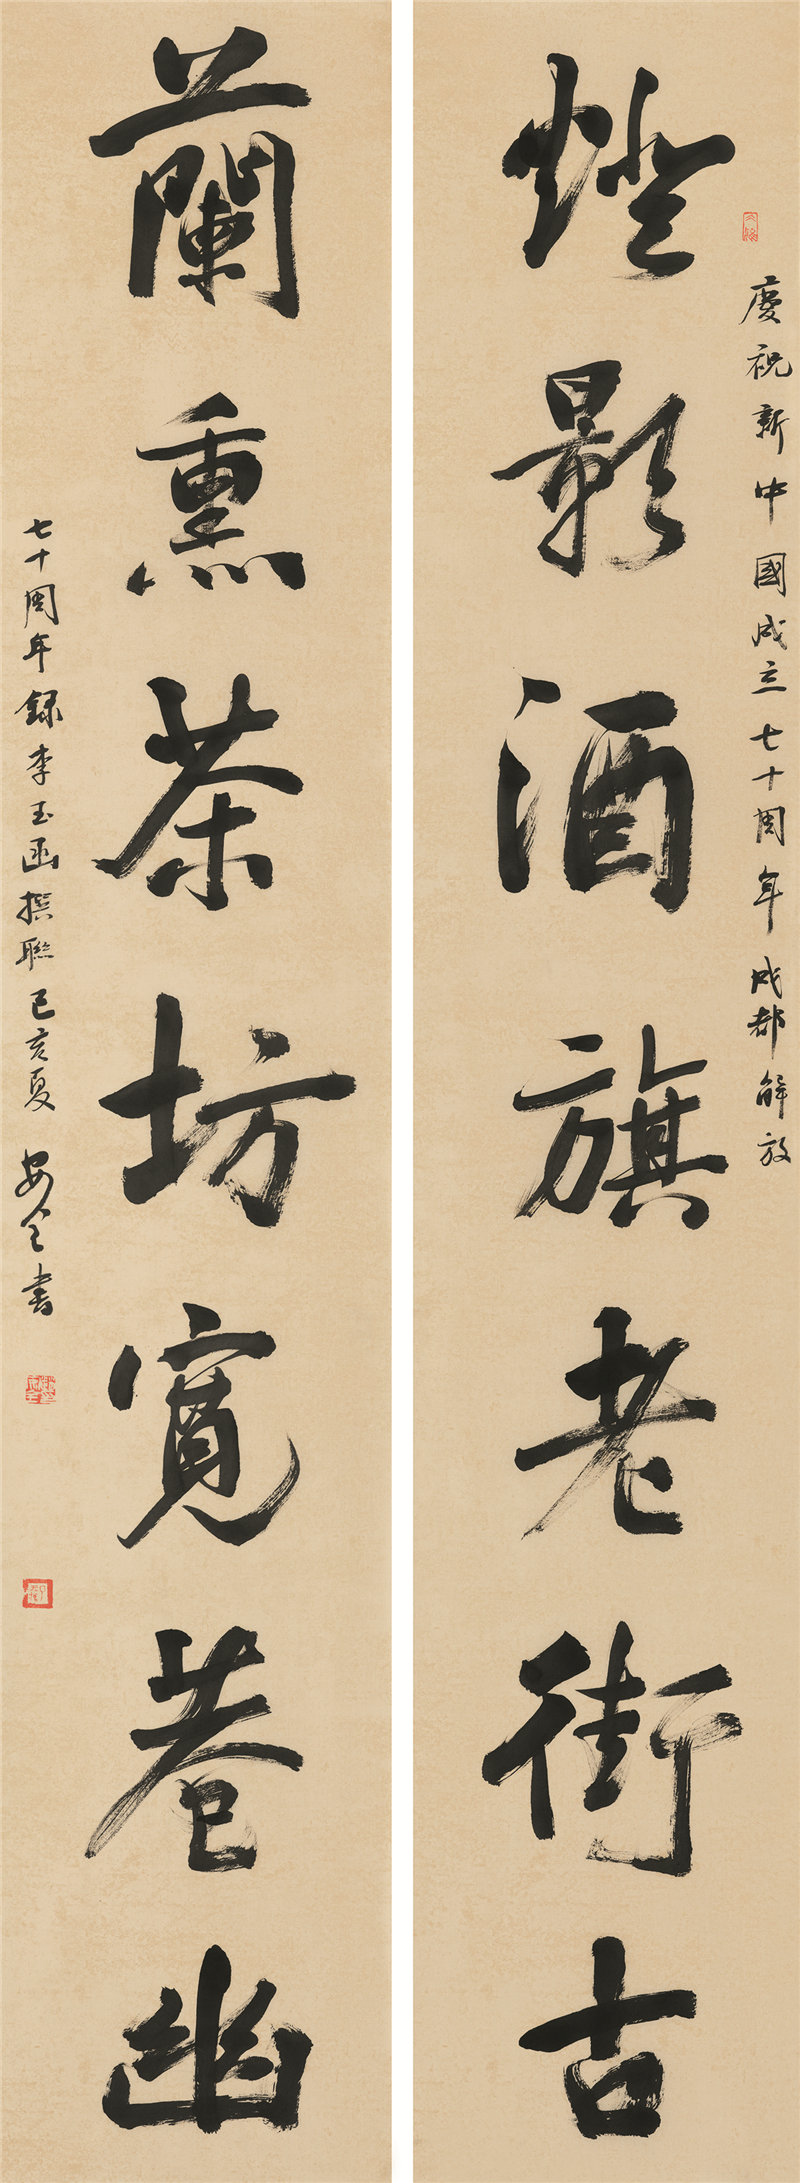 慶祝新中國成立七十周年成都解放
燈影酒旗老街古
蘭熏茶坊寬巷幽
七十周年錄李玉函撰聯己亥夏
書